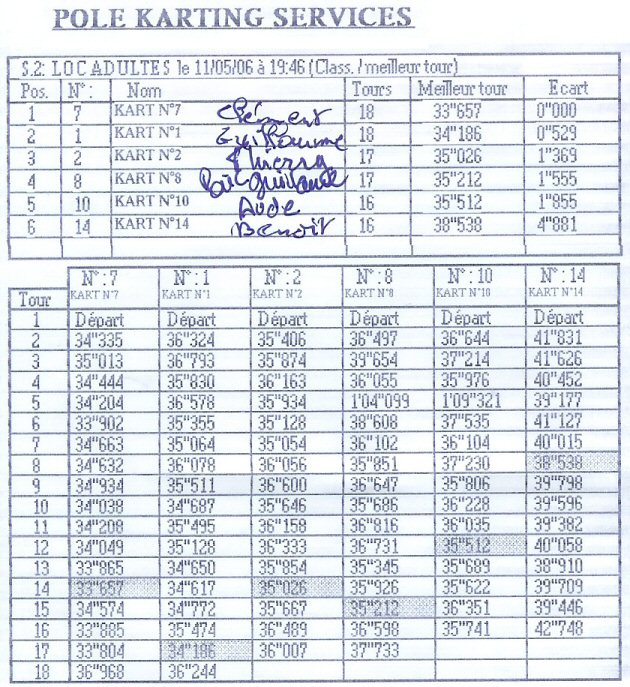 POLE KARTING SERVICES
S.2: LOC ADULTES le 11/05/06 à 19:46 (Class. / meilleur tour)
Pos. N°: Nom Tours Meilleur tour Ecart
1 7 KART N°7 Clément 18 33"657 0"000
2 1 KART N°1 Guillaume 18 34"186 0"529
3 2 KART N°2 Thierry 17 35"026 1"369
4 8 KART N°8 17 35"212 1"555
5 10 KART N°10 Aude 16 35"512 1"855
6 14 KART N°14 Benoit 16 38"538 4"881
N°: 7 N°: 1 N°: 2 N°: 8 N°: 10 N°: 14
Tour KART N°7 KART N°1 KART N°2 KART N°8 KART N°10 KART N°14
1 Départ Départ Départ Départ Départ Départ
2 34"335 36"324 35"406 36"497 36"644 41"831
3 35"013 36"793 35"874 39"654 37"214 41"626
4 34"444 35"830 36"163 36"055 35"976 40"452
5 34"204 36"578 35"934 1'04"099 1'09"321 39"177
6 33"902 35"355 35"128 38"608 37"535 41"127
7 34"663 35"064 35"054 36"102 36"104 40"015
8 34"632 36"078 36"056 35"851 37"230 38"538
9 34"934 35"511 36"600 36"647 35"806 39"798
10 34"038 34"687 35"646 35"686 36"228 39"596
11 34"208 35"495 36"158 36"816 36"035 39"382
12 34"049 35"128 36"333 36"731 35"512 40"058
13 33"865 34"650 35"854 35"345 35"689 38"910
14 33"657 34"617 35"026 35"926 35"622 39"709
15 34"574 34"772 35"667 35"212 36"351 39"446
16 33"885 35"474 36"489 36"598 35"741 42"748
17 33"804 34"186 36"007 37"733
18 36"968 36"244